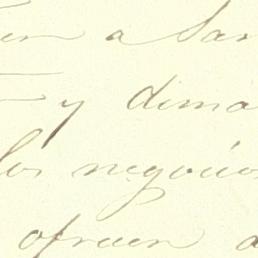 en a San
y dema
los negocios
ofrecen a